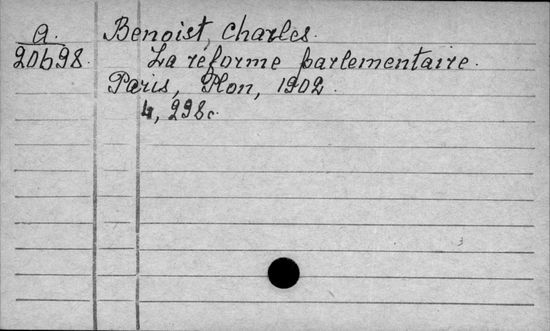 a. Benoist, Charles.
20698. La réforme parlementaire.
Paris, Plon, 1902.
4, 298c.